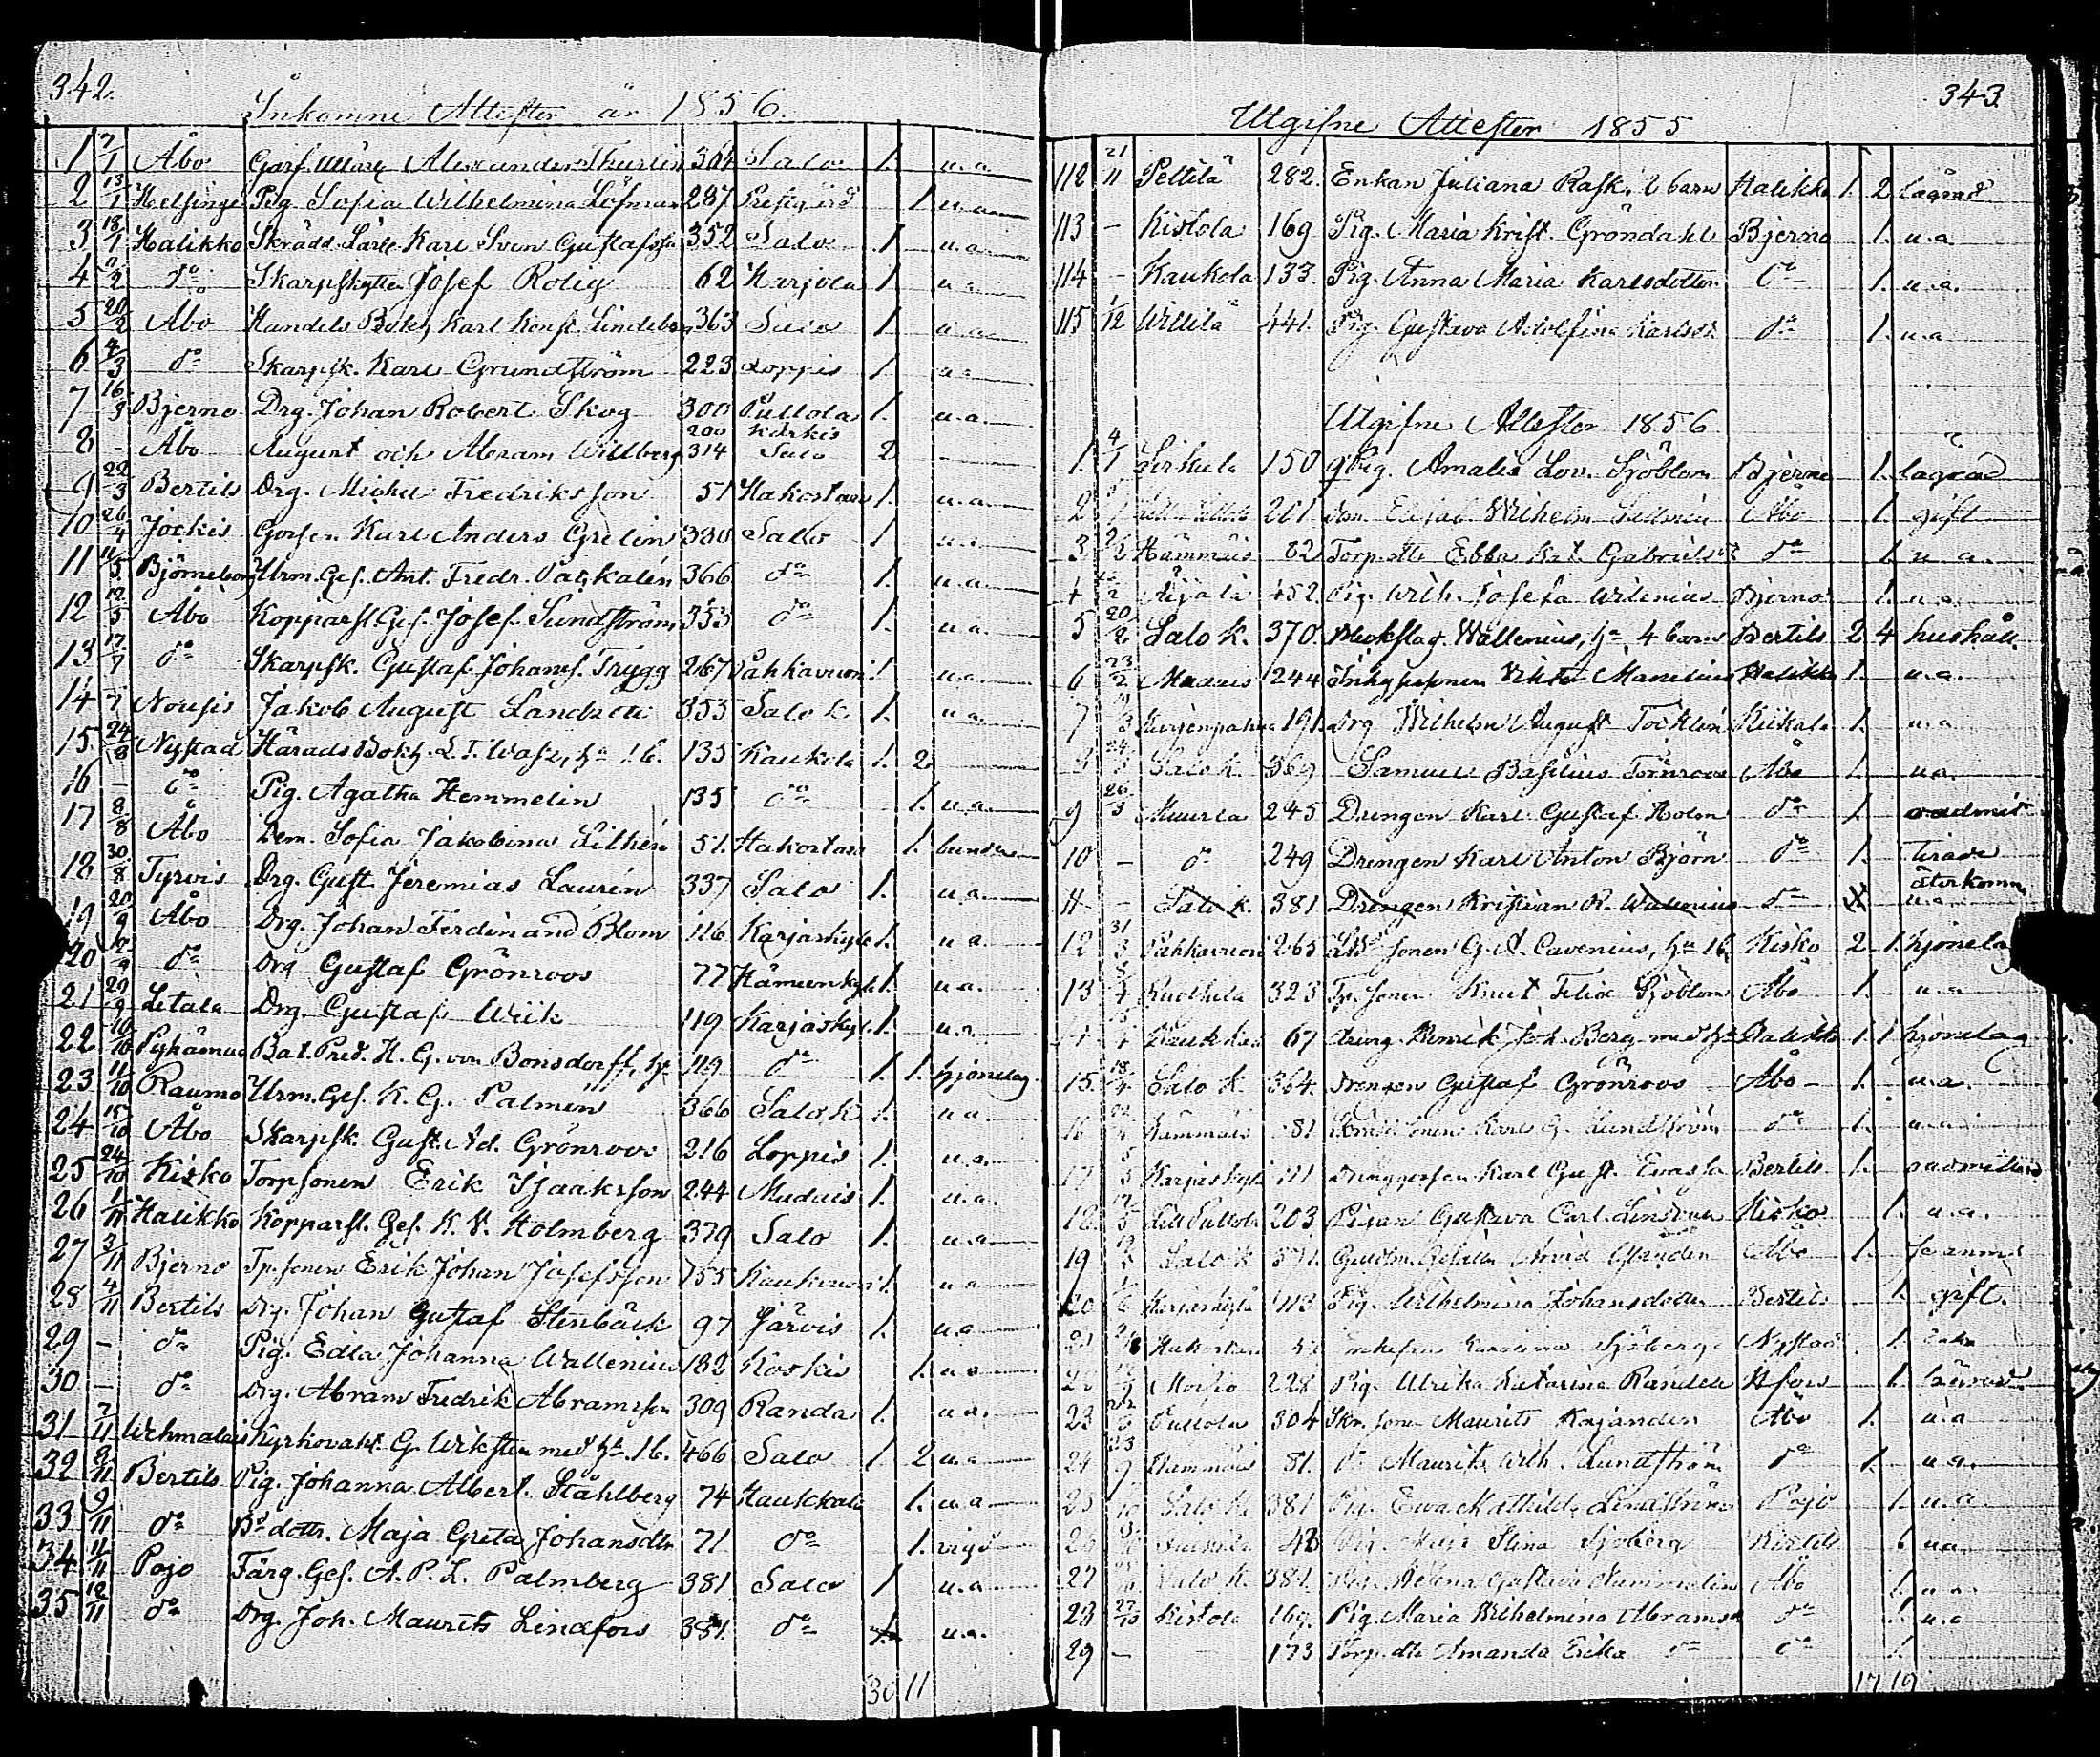 342.
Inkomne Attester år 1856.
1 7/1 Åbo Garf. Alexander Thurlin 364 Salo 1. u.a.
2 13/1 Helsinge Pig. Sofia Wilhelmina Löfman 287 Prestgård 1 u.a.
3 18/1 Halikko Skrädd. Lärl. Karl Sven Gustafsson 352 Salo 1 u.a.
4 /2 do Skarpskytten Josef Rolig 62 Karjola 1 u.a.
5 20/2 Åbo Handels Bokh. Karl Konst. Lindeberg 363 Salo 1. u.a.
6 4/3 do Skarpsk. Karl Grundström 223 Loppis 1. u.a.
7 16/3 Bjerno Drg. Johan Robert Skog 300 Pullola 1. u.a.
200 Kärkis
8 - Åbo August och Abram Willberg 314 Salo 2
9 22/3 Bertils Drg. Michel Fredriksson 51 Hakostaro 1. u.a.
10 26/4 Jockis Karl Anders Grelin 380 Salo 1 u.a.
11 11/5 Björneborg Urm. Ges. Ant. Fredr. 366 do 1. u.a.
12 12/5 Åbo Kopparsl. Ges. Josef Sundström 353 do 1. u.a.
13 17/7 do Skarpsk. Gustaf Johanss. Trygg 267 Påhkavuori 1 u.a.
14 -7 Nousis Jakob August 353 Salo k. 1. u.a.
15. 24/8 Nystad Härads Bokh. L. T. hu 1 b. 135 Kaukola 1. 2.
16 - do Pig. Agatha Hemmelin 135 do 1. u.a.
17 8/8 Åbo Dem. Sofia Jakobina Lithén 51. Hakostaro 1.
18 30/8 Tyrvis Drg. Gust. Jeremias Laurén 337 Salo 1. u.a.
19 20/9 Åbo Drg. Johan Ferdinand Blom 116 Karjaskyla 1. u.a.
20 /9 do Drg Gustaf Grönroos 77 Hämeenkyl. 1. u.a.
21 29/9 Letala Drg. Gustaf Wiik 119 Karjaskyl. 1. u.a.
22 10/10 Pyhämaa Bat. Pred. H. G. von Bonsdorff, h. 119 do 1. 1. hjonelag
23 11/10 Raumo Urm. Ges. K. G. Palmén 366 Salo k 1. u.a.
24 15/10 Åbo Skarpsk. Gust. Ad. Grönroos 216 Loppis 1. u.a.
25 24/10 Kisko Torpsonen Erik Isaaksson 244 Muduis 1. u.a.
26 1/11 Halikko Kopparsl. Ges. K. V. Holmberg 379 Salo 1. u.a.
27 3/11 Bjerno Tp. sonen Erik Johan Josefsson 155 1. u.a.
28 4/11 Bertils Drg. Johan Gustaf Stenbäck 97 Järvis 1. u.a.
29 - do Pig. Edla Johanna Wallenius 182 Koskis 1. u.a.
30 - do Drg. Abram Fredrik Abramsson 309 Randa 1. u.a.
31 7/11 Wehmalais Kyrkovakt. G. Wiksten med h. 1 b. 466 Salo 1. 2 u.a.
32 8/11 Bertils Pig. Johanna Albert. Ståhlberg 74 Haukkala 1. u.a.
33 9/11 do Bd dottr. Maja Greta Johansdtr 71 do 1. vigd
34 11/11 Pojo Färg. Ges. A. P. L. Palmberg 381 Salo 1 u.a.
35 12/11 do Drg. Joh. Maurits Lindfors 381. do 1. u.a.
30 11
343.
Utgifne Attester 1855
112 21/11 Pettilä 282. Enkan Juliana Rask. 2 barn Halikko 1. 2 lägrad
113 - Kistola 169 Pig. Maria Krist. Gröndahl Bjerno 1. u.a.
114 - Kaukola 133. Pig. Anna Maria Karlsdotter do 1. u.a.
115 1/12 Willilä 441. Pig. Gustava Adolfina Karlsd. do 1. u.a.
Utgifne Attester 1856
1. 4/1 150 Pig. Amalia Lov. Sjöblom Bjerno 1. lägrad
2 201 Wilhelm. Åbo 1. gift
3 /2 Hämmäis 82 Torp dtr Ebba Kat. Gabrielsd do 1. u.a.
4 /2 Äijälä 452. Pig. Wilh. Josefa Wilenius Bjerno 1. u.a.
5 20/2 Salo k. 370. Wallenius, hu 4 barn Bertils 2 4 hushåll.
6 23/2 Muduis 244 Inhysesson Halikko 1. u.a.
7 /3 191. Drg Wilhelm August Kiikala 1. u.a.
8 24/3 Salo k. 369 Samuel Basilius Törnroos Åbo 1. u.a.
9 26/3 Muurla 245 Drengen Karl Gustaf Holm do 1. oadmitt
10 - do 249 Drengen Karl Anton Björn do 1.
återkomm.
11 - Salo k. 381 Drengen Kristian R. Wallenius do u.a.
12 31/3 Pahkavuori 265 sonen G. A. Cavenius, hu 1 b. Kisko 2 1. hjonelag
13 /4 Ruotsila 323 Tp. sonen Knut Felix Sjöblom Åbo 1. u.a.
14 /4 67 dreng. Henrik Joh. Berg med hu Halikko 1 1 hjonelag
15. 18/4 Salo k. 364. Drengen Gustaf Grönroos Åbo 1. u.a.
16 Hämmäis 81 sonen Karl G. Lundström do 1. u.a.
17 /5 Karjaskylä 111 Karl Gust. Bertils 1. oadmitterad
18. /5 Lill Pullola 203 Pigan Gustava Carl. Kisko 1. u.a.
19 Salo k. 371. Gesällen Arvid Åbo 1.
20 /6 Karjaskylä 113 Pig. Wilhelmina Johansdotter Bertils 1. gift.
21 Hakostaro Sjöberg Nystad 1.
22 Moisio 228 Pig. Ulrika Katarina Randell Hfors 1.
23 Pullola 304 sonen Maurits Kajander Åbo 1. u.a
24 23/9 Hämmäis 81. do Maurits Wilh. Lundström do 1. u.a.
25 /10 Salo k. 381 Pig. Eva Mathilda Lindström Pojo 1. u.a
26 43 Pig. Maja Stina Sjöberg Bertils 1 u.a.
27 Salo k. 381. Pig. Helena Gustava Nummelin Åbo 1. u.a.
28 27/10 Kistola 169. Pig. Maria Wilhelmina Abramsd. do 1. u.a
29 - 173 Torp. dtr Amanda Erika do do 1.
17 19